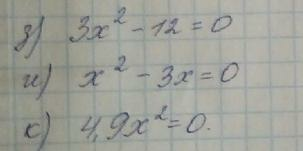 з) 3x² - 12 = 0
и) x² - 3x = 0
к) 4,9x² = 0.